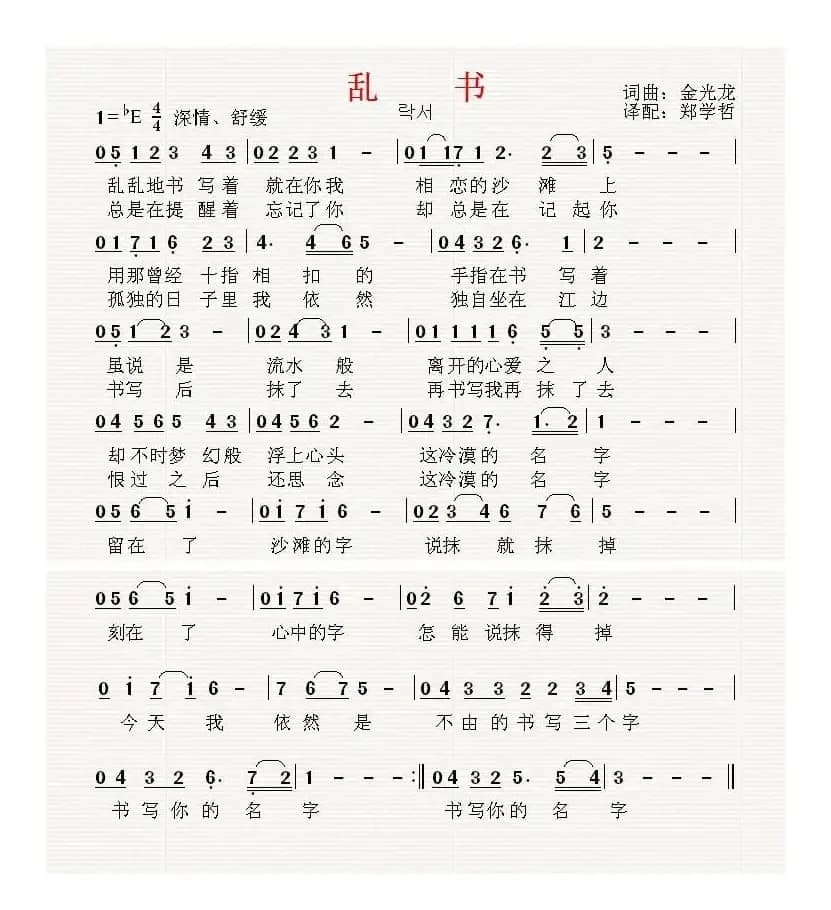 乱 书
词曲：金光龙
1=♭E 4/4 深情、舒缓
락서
译配：郑学哲
0 5 1 2 3 4 3 | 0 2 2 3 1 - | 0 1 1 7 1 2· 2 3 | 5 - - - |
乱乱地书 写着 就在你我 相 恋的沙 滩 上
总是在提 醒着 忘记了你 却 总是在 记 起你
0 1 7 1 6 2 3 | 4· 4 6 5 - | 0 4 3 2 6· 1 | 2 - - - |
用那曾经 十指 相 扣 的 手指在书 写 着
孤独的日 子里 我 依 然 独自坐在 江 边
0 5 1 2 3 - | 0 2 4 3 1 - | 0 1 1 1 1 6 5 5 | 3 - - - |
虽说 是 流水 般 离开的心爱 之 人
书写 后 抹了 去 再书写我再 抹 了去
0 4 5 6 5 4 3 | 0 4 5 6 2 - | 0 4 3 2 7· 1· 2 | 1 - - - |
却 不时梦 幻般 浮上心头 这冷漠的 名 字
恨 过之后 还思 念 这冷漠的 名 字
0 5 6 5 i - | 0 i 7 i 6 - | 0 2 3 4 6 7 6 | 5 - - - |
留在 了 沙滩的字 说抹 就 抹 掉
0 5 6 5 i - | 0 i 7 i 6 - | 0 2 6 7 i 2 3 | 2 - - - |
刻在 了 心中的字 怎 能 说抹 得 掉
0 i 7 i 6 - | 7 6 7 5 - | 0 4 3 3 2 2 3 4 | 5 - - - |
今天 我 依 然 是 不 由 的 书 写 三 个 字
0 4 3 2 6· 7 2 | 1 - - - :‖ 0 4 3 2 5· 5 4 | 3 - - - ‖
书 写 你 的 名 字 书写你的 名 字